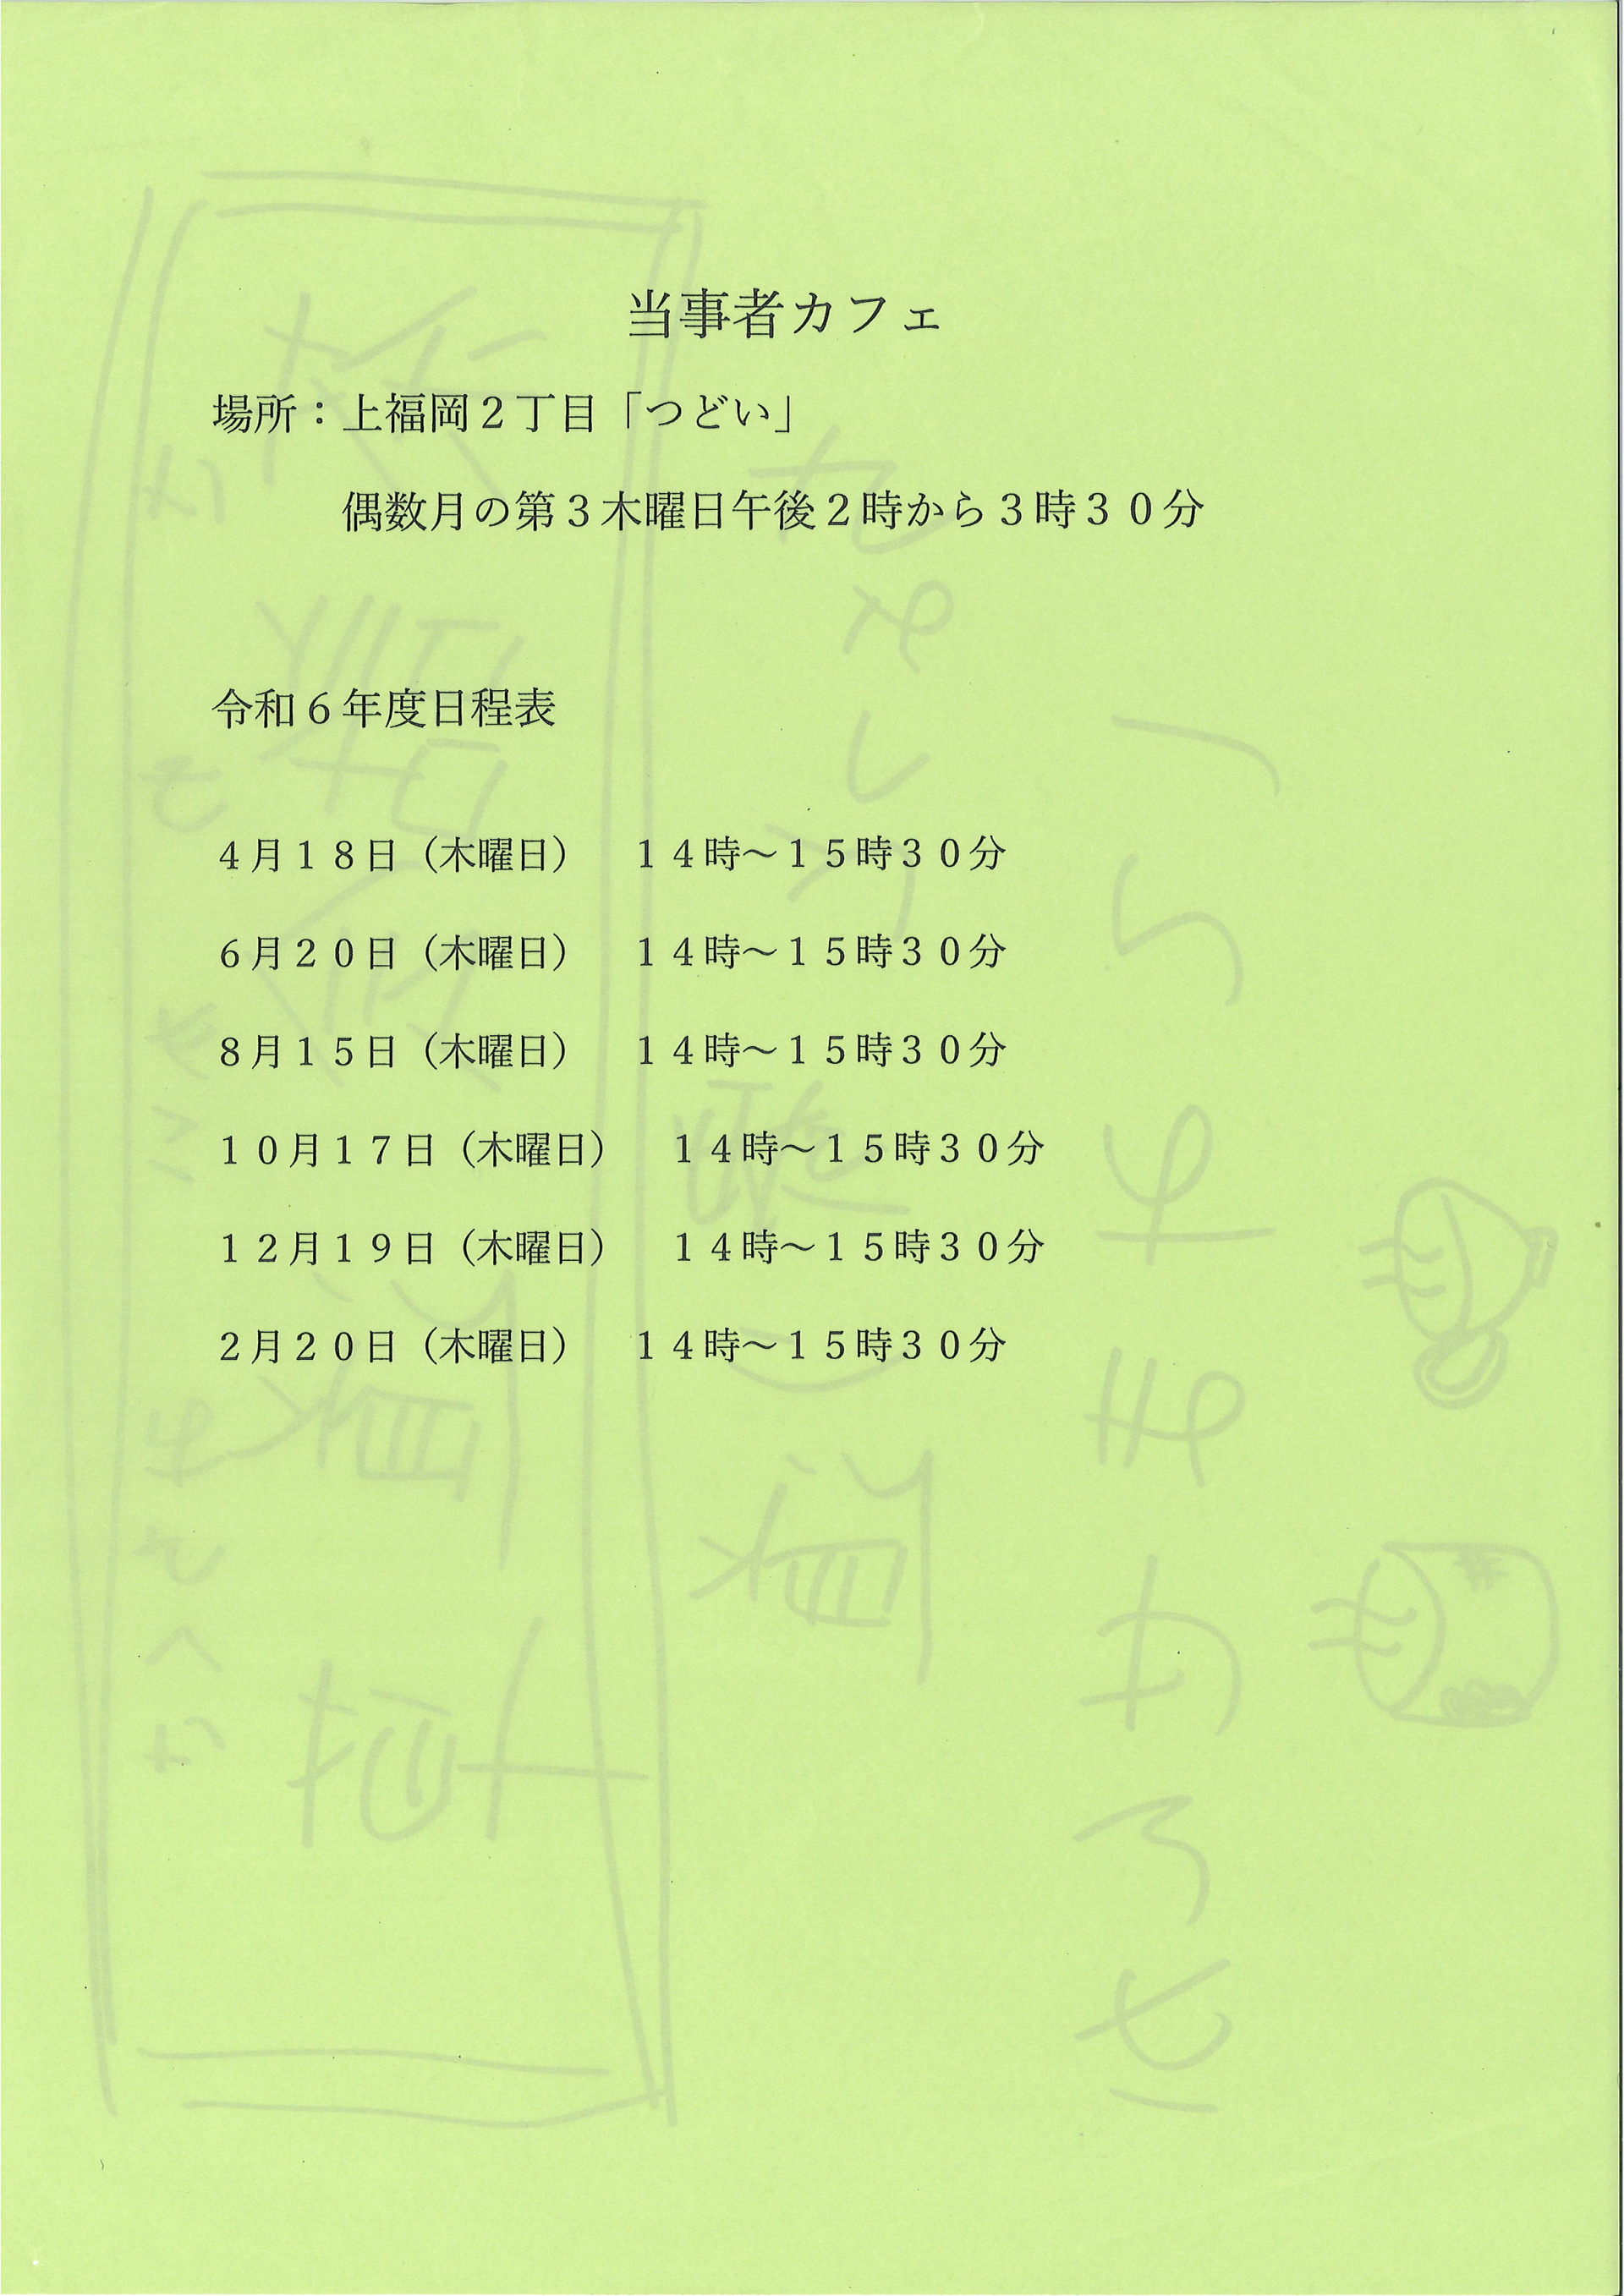 当事者カフェ
場所：上福岡２丁目「つどい」
偶数月の第３木曜日午後２時から３時３０分
令和６年度日程表
４月１８日（木曜日）　１４時～１５時３０分
６月２０日（木曜日）　１４時～１５時３０分
８月１５日（木曜日）　１４時～１５時３０分
１０月１７日（木曜日）　１４時～１５時３０分
１２月１９日（木曜日）　１４時～１５時３０分
２月２０日（木曜日）　１４時～１５時３０分